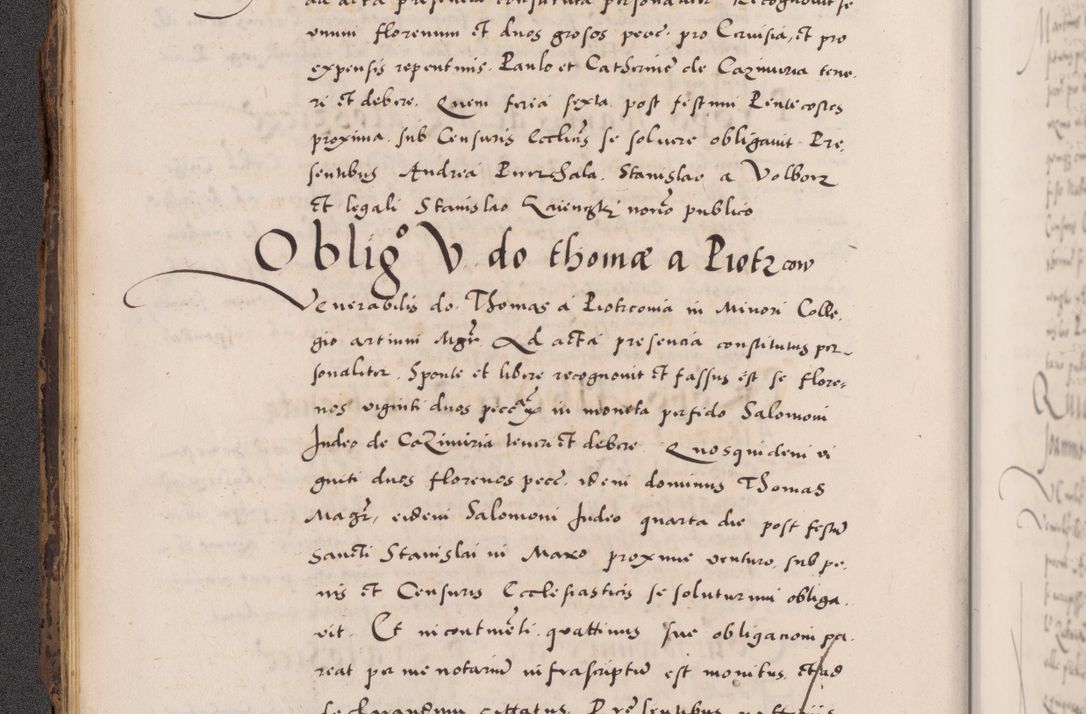 ad acta presencia constituta personaliter Recognovit se
unum florenum et duos grosos pecc. pro Cervisia, et pro
expensis repentinis. Paulo et Catherine de Cazimiria tene,
ri et debere. Quem feria sexta post festum Pentecostes
proxima sub Censuris Ecclīis se solvere obligavit Pre,
sentibus Andrea Stanislao a Volborz
et legali Stanislao notrō publico
Obligº V. do thomæ a Piotrcow
Venerabilis do. Thomas a Piotrcovia in Minori Colle,
gio artium Mgr̄. Ad acta presencia constitutus per,
sonaliter. Sponte et libere recognovit et fassus est se flore,
nos viginti duos pecc in moneta perfido Salomoni
Judeo de CaZimiria teneri et debere Quosquidem vi
ginti duos florenos pecc. idem dominus Thomas
Magr̄, eidem Salomoni Judeo quarta die post festū
Sancti Stanislai in Maxo proxime venturo, sub pe,
nis et Censuris Ecclesiasticis se soluturum obliga,
vit. Et in continēti quattinus sue obligacioni pa,
reat per me notariū infrascriptū est monitus, et ad
declarandum cittatus. Presentibus